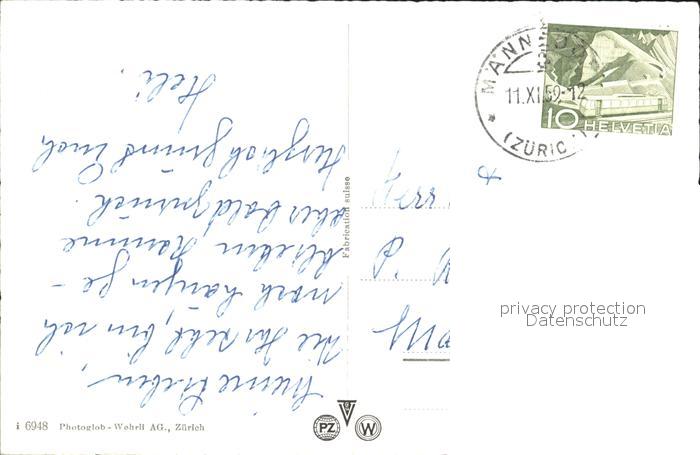 Meine Lieben,
Wie Ihr seht, bin ich
noch hängen ge-
blieben. Komme
aber bald zurück.
Herzlich grüsst Euch
Heli.
Fabrication suisse
MÄNN
11.XI.59-12
(ZÜRIC
10 HELVETIA
Herr
P.
privacy protection
Datenschutz
i 6948 Photoglob-Wehrli AG., Zürich
PZ W